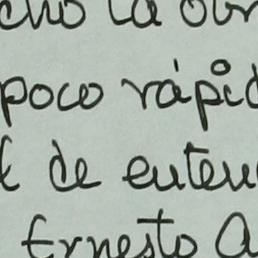 cho la obr
poco rápid
de enten
Ernesto a